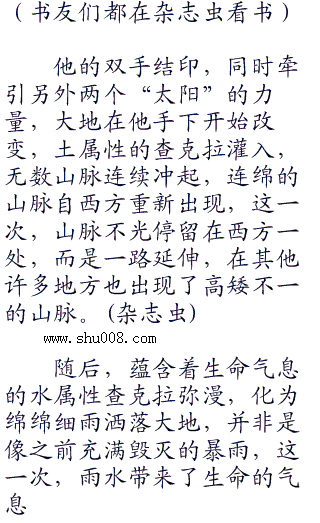 （书友们都在杂志虫看书）
他的双手结印，同时牵
引另外两个“太阳”的力
量，大地在他手下开始改
变，土属性的查克拉灌入，
无数山脉连续冲起，连绵的
山脉自西方重新出现，这一
次，山脉不光停留在西方一
处，而是一路延伸，在其他
许多地方也出现了高矮不一
的山脉。(杂志虫)
www.shu008.com
随后，蕴含着生命气息
的水属性查克拉弥漫，化为
绵绵细雨洒落大地，并非是
像之前充满毁灭的暴雨，这
一次，雨水带来了生命的气
息